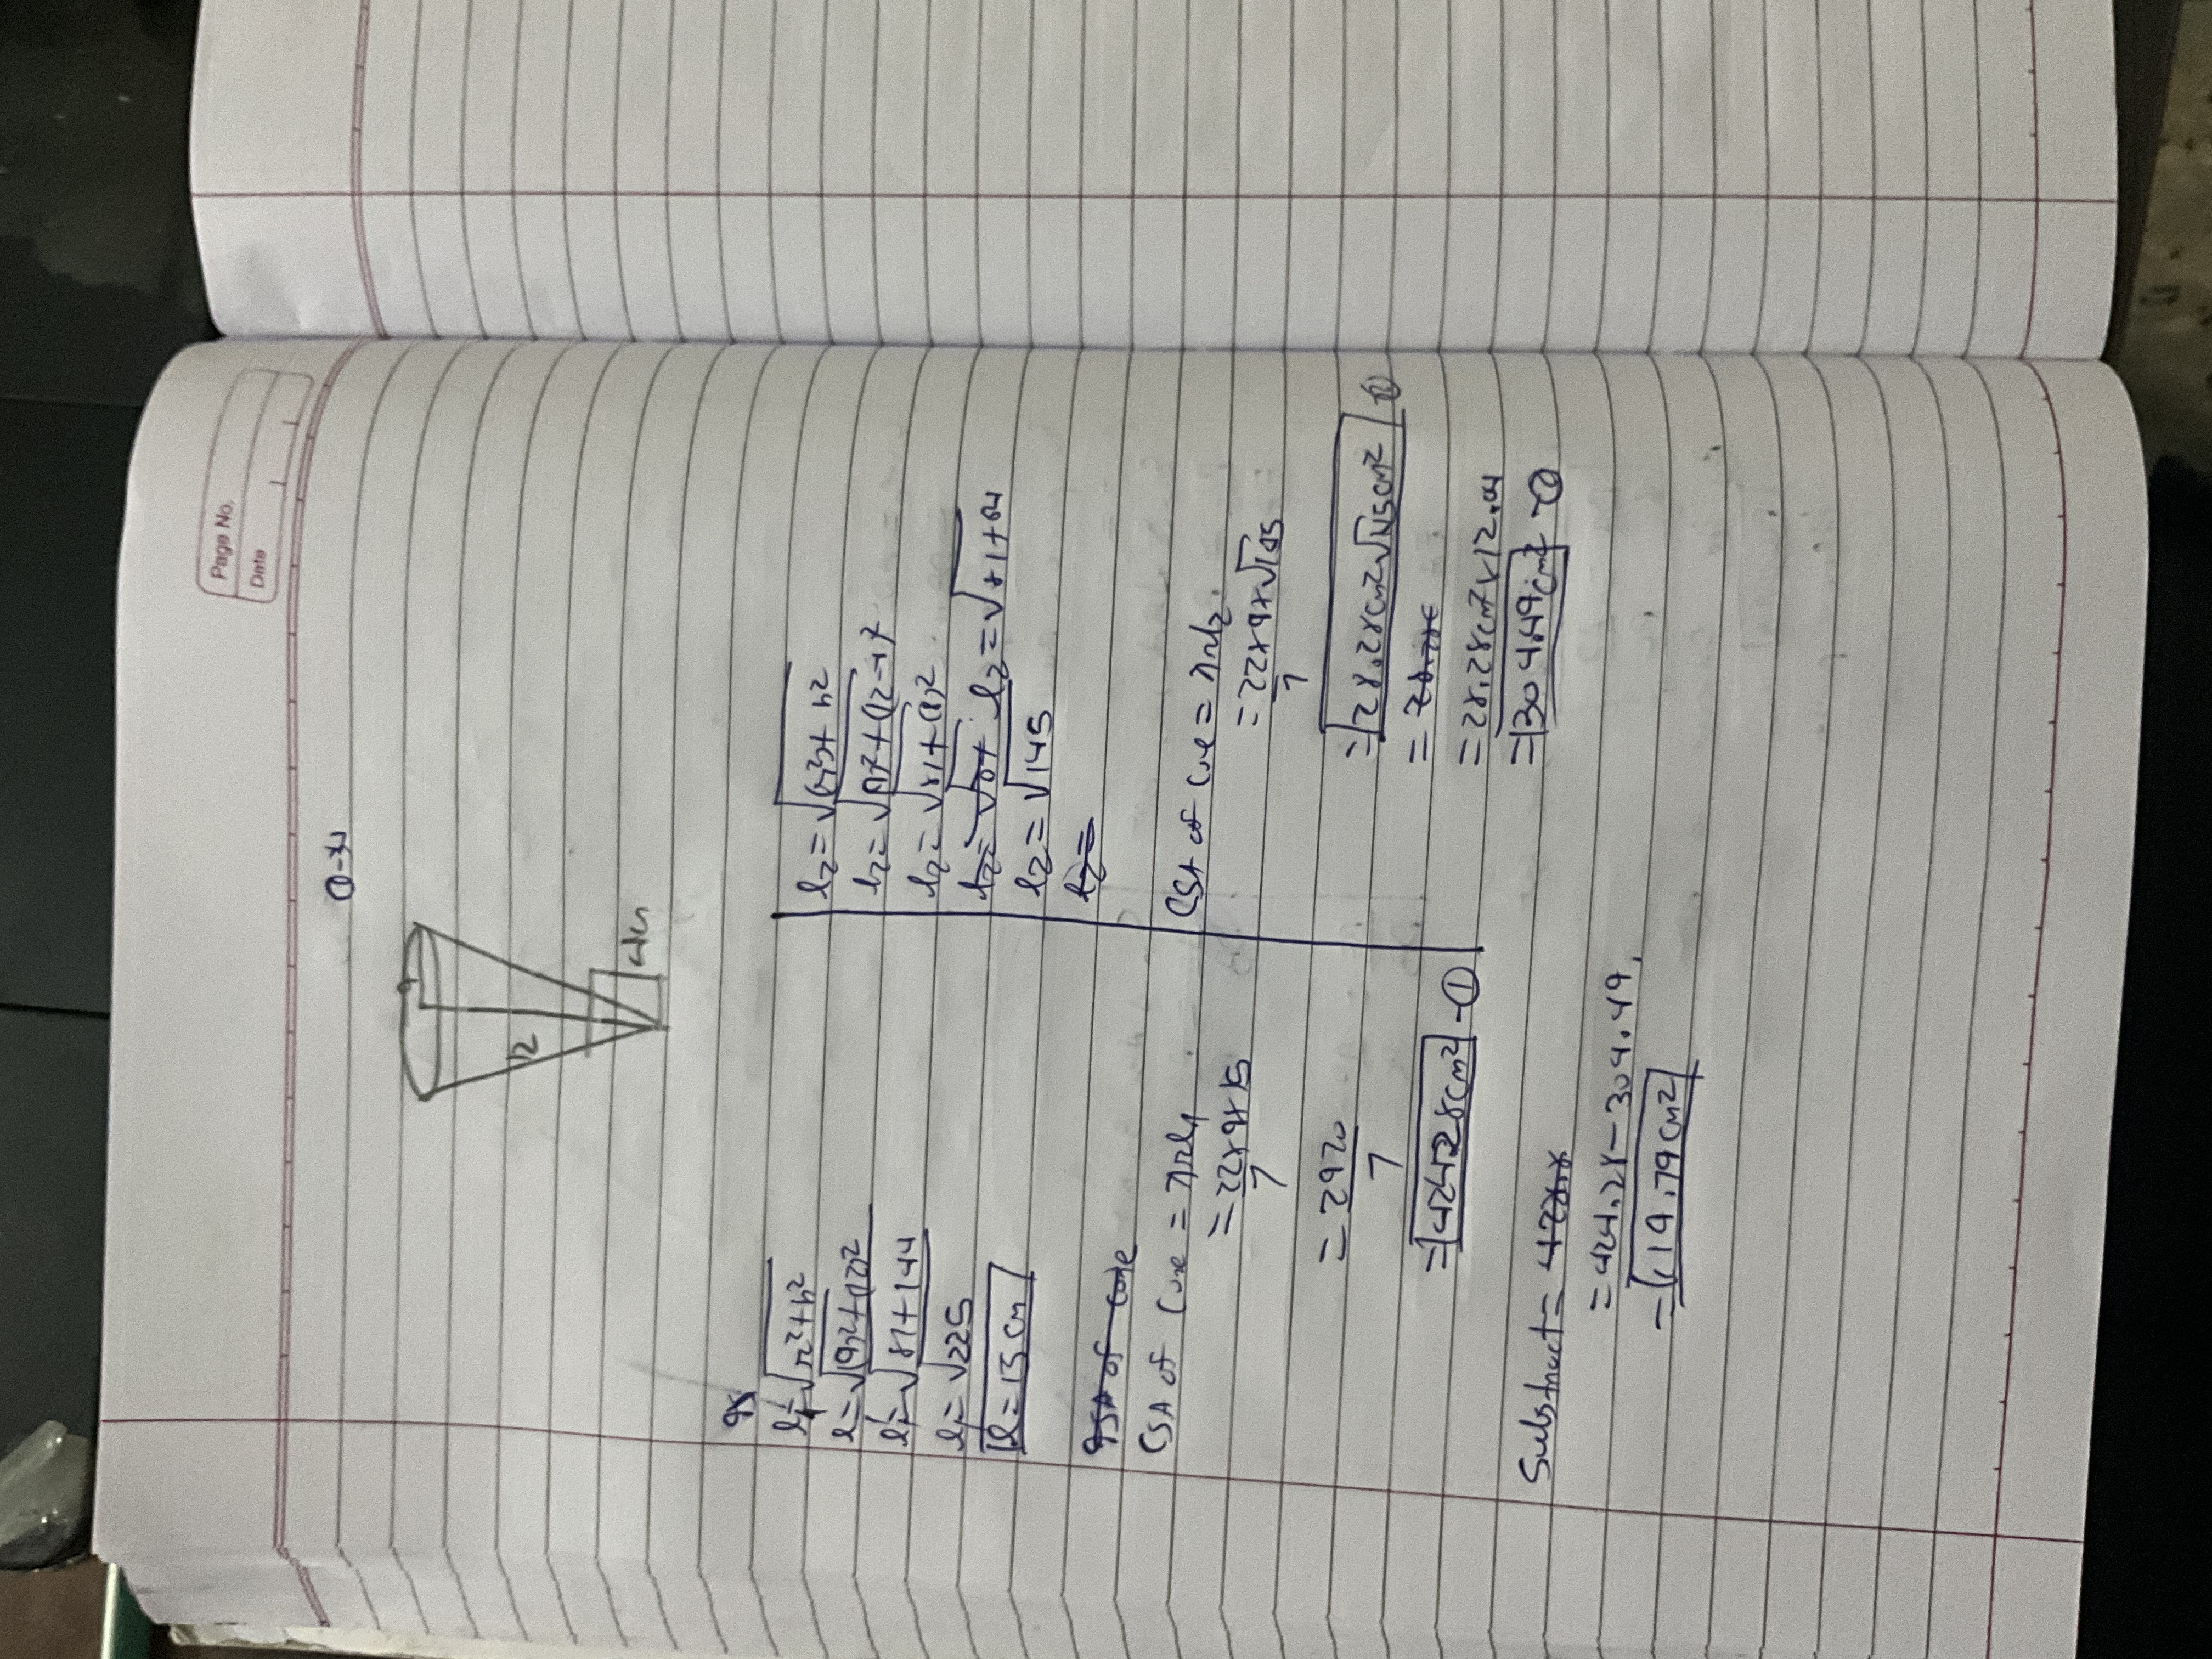 Page No.
Date
Q-34
9
12
4cm
l₁=√r²+h²
l₁=√(9)²+(12)²
l₁=√81+144
l₁=√225
l=15cm
CSA of cone
CSA of cone = πrl₁
=22×9×15
7
=2970
7
=424.28cm² -①
l₂=√(r)²+h²
l₂=√(9)²+(12-4)²
l₂=√81+(8)²
l₂=√81+ l₂=√81+64
l₂=√145
l₂=
CSA of cone = πrl₂
=22×9×√145
7
=28.28cm²√145cm² ②
=28.28c
=28.28cm²×12.04
=304.49cm² -②
Substract=
=424.28-304.49
=119.79cm²